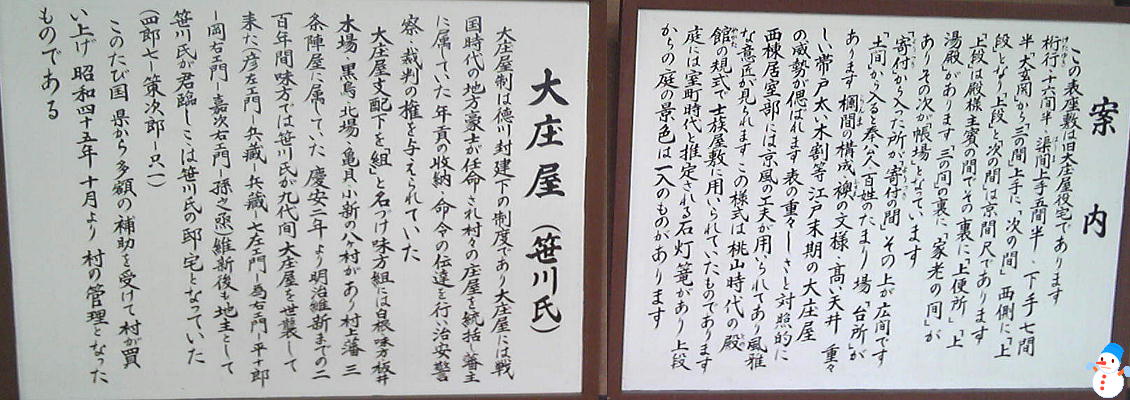 案内
この表座敷は旧大庄屋役宅であります
桁行、十六間半、梁間上手五間半、下手七間
半「大玄関」から「三の間」上手に「次の間」西側に「上
段」となり「上段」と「次の間」は京間尺であります
「上段」は殿様主賓の間でその裏に「上便所」「上
湯殿」があります「三の間」の裏に「家老の間」が
ありその次が「帳場」となっています
「寄付」から入った所が「寄付の間」その上が「広間」です
「土間」から入ると奉公人百姓のたまり場「台所」が
あります 欄間の構成、襖の文様、高い天井 重々
しい帯戸太い木割等江戸末期の大庄屋
の威勢が偲ばれます 表の重々しさと対照的に
西棟居室部には京風の工夫が用いられてあり風雅
な意匠が見られます この様式は桃山時代の殿
館の規式で士族屋敷に用いられていたものであります
庭には室町時代と推定される石灯篭があり上段
からの庭の景色は一入のものがあります
大庄屋(笹川氏)
大庄屋制は徳川封建下の制度であり大庄屋には戦
国時代の地方豪士が任命され村々の庄屋を統括し藩主
に属していた 年貢の収納、命令の伝達を行い治安警
察、裁判の権を与えられていた
大庄屋支配下を「組」と名づけ味方組には白根・味方・板井
木場・黒鳥・北場・亀貝・小新の八ケ村があり村上藩 三
条陣屋に属していた 慶安二年より明治維新までの二
百年間味方では笹川氏が九代間 大庄屋を世襲して
来た「彦左エ門―兵蔵―兵蔵―七左エ門―為右エ門―平十郎
―岡右エ門―嘉次右エ門―孫之丞」維新後も地主として
笹川氏が君臨しここは笹川氏の邸宅となっていた
(四郎七―策次郎―只一)
このたび国 県から多額の補助を受けて 村が買
い上げ 昭和四十五年十月より 村の管理となった
ものである